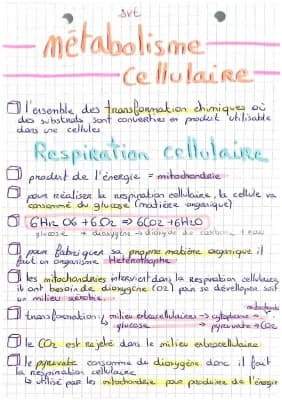 SVT
métabolisme
cellulaire
l'ensemble des transformation chimiques où
des substrats sont converties en produit utilisable
dans une cellules
Respiration cellulaire
produit de l'énergie = mitochondrie
pour réaliser la respiration cellulaire, la cellule va
consommé du glucose (matière organique)
6H12 O6 + 6O2 => 6CO2 + 6H2O
glucose + dioxygène -> dioxyde de carbone + eau
pour fabriquer sa propre matière organique il
faut un organisme Hétérotrophe
les mitochondries intervient dans la Respiration cellulaires,
ils ont besoin de dioxygène (O2) pour se développer soit
un milieu aérobie.
transformation milieu extracellulaires -> cytoplasme ->
mitochondrie
glucose -> pyruvate -> CO2
le CO2 est rejeté dans le milieu extracellulaire
le pyruvate consomme du dioxygène donc il fait
la respiration cellulaire
utilisé par les mitochondrie pour produire de l'énergie